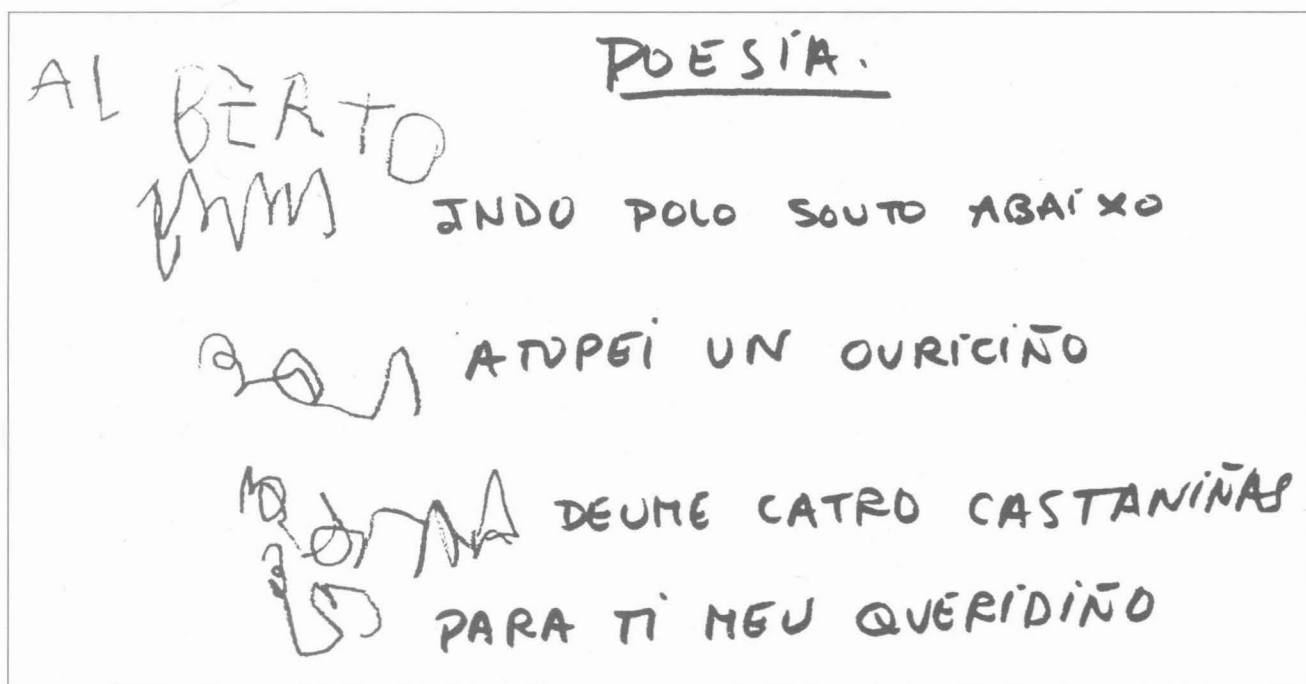 POESÍA.
AL BERTO
INDO POLO SOUTO ABAIXO
ATOPEI UN OURICIÑO
DEUME CATRO CASTANIÑAS
PARA TI MEU QUERIDIÑO